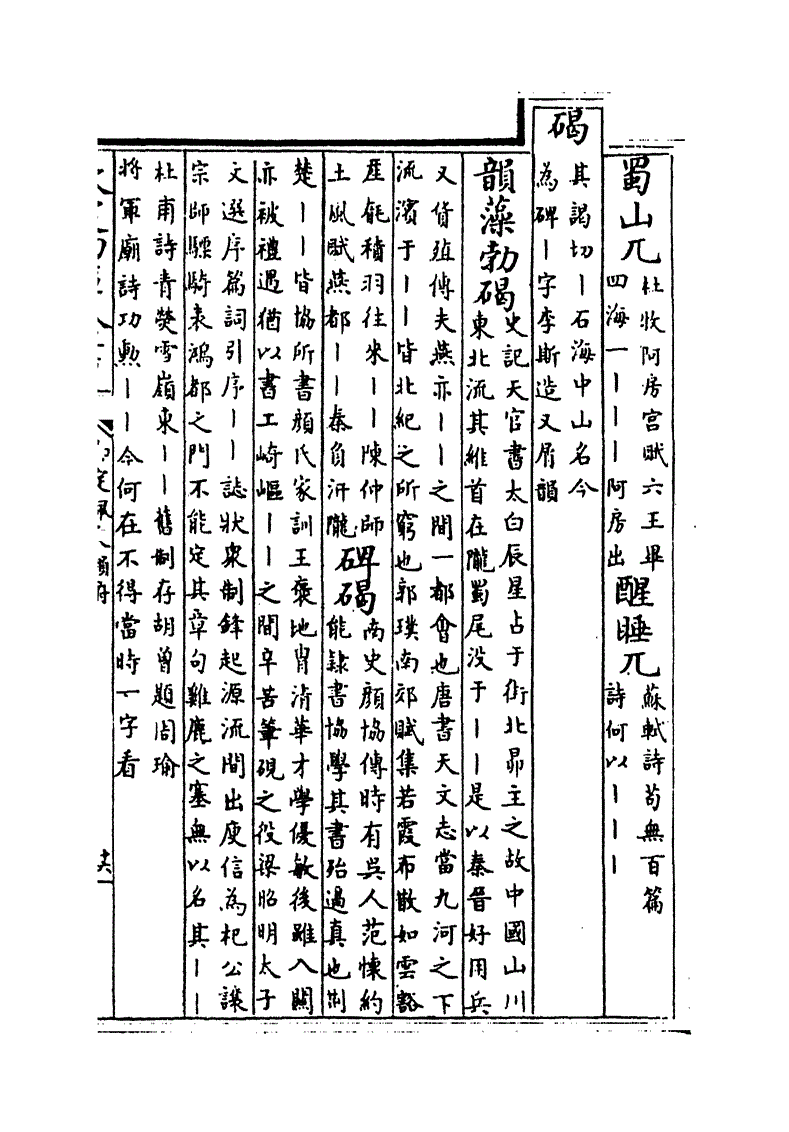 蜀山兀
杜牧阿房宮賦六王畢
四海一丨丨丨阿房出
醒睡兀
蘇軾詩茍無百篇
詩何以丨丨丨
碣
其謁切丨石海中山名今
為碑丨字李斯造又屑韻
韻藻勃碣
史記天官書太白辰星占于街北昴主之故中國山川
東北流其維首在隴蜀尾没于丨丨是以秦晉好用兵
又貨殖傳夫燕亦丨丨之間一都會也唐書天文志當九河之下
流濱于丨丨皆北紀之所窮也郭璞南郊賦集若霞布散如雲豁
崖毻積羽往來丨丨陳仲師
土風賦燕都丨丨秦負汧隴
碑碣
南史顔協傳時有吳人范懐約
能隸書協學其書殆過真也荆
楚丨丨皆協所書顔氏家訓王褒地胄清華才學優敏後雖入關
亦被禮遇猶以書工崎嶇丨丨之間辛苦筆硯之役梁昭明太子
文選序篇詞引序丨丨誌狀衆制鋒起源流間出庾信為杞公讓
宗師驃騎表鴻都之門不能定其章句雞鹿之塞無以名其丨丨
杜甫詩青熒雪嶺東丨丨舊制存胡曾題周瑜
將軍廟詩功勲丨丨今何在不得當時一字看